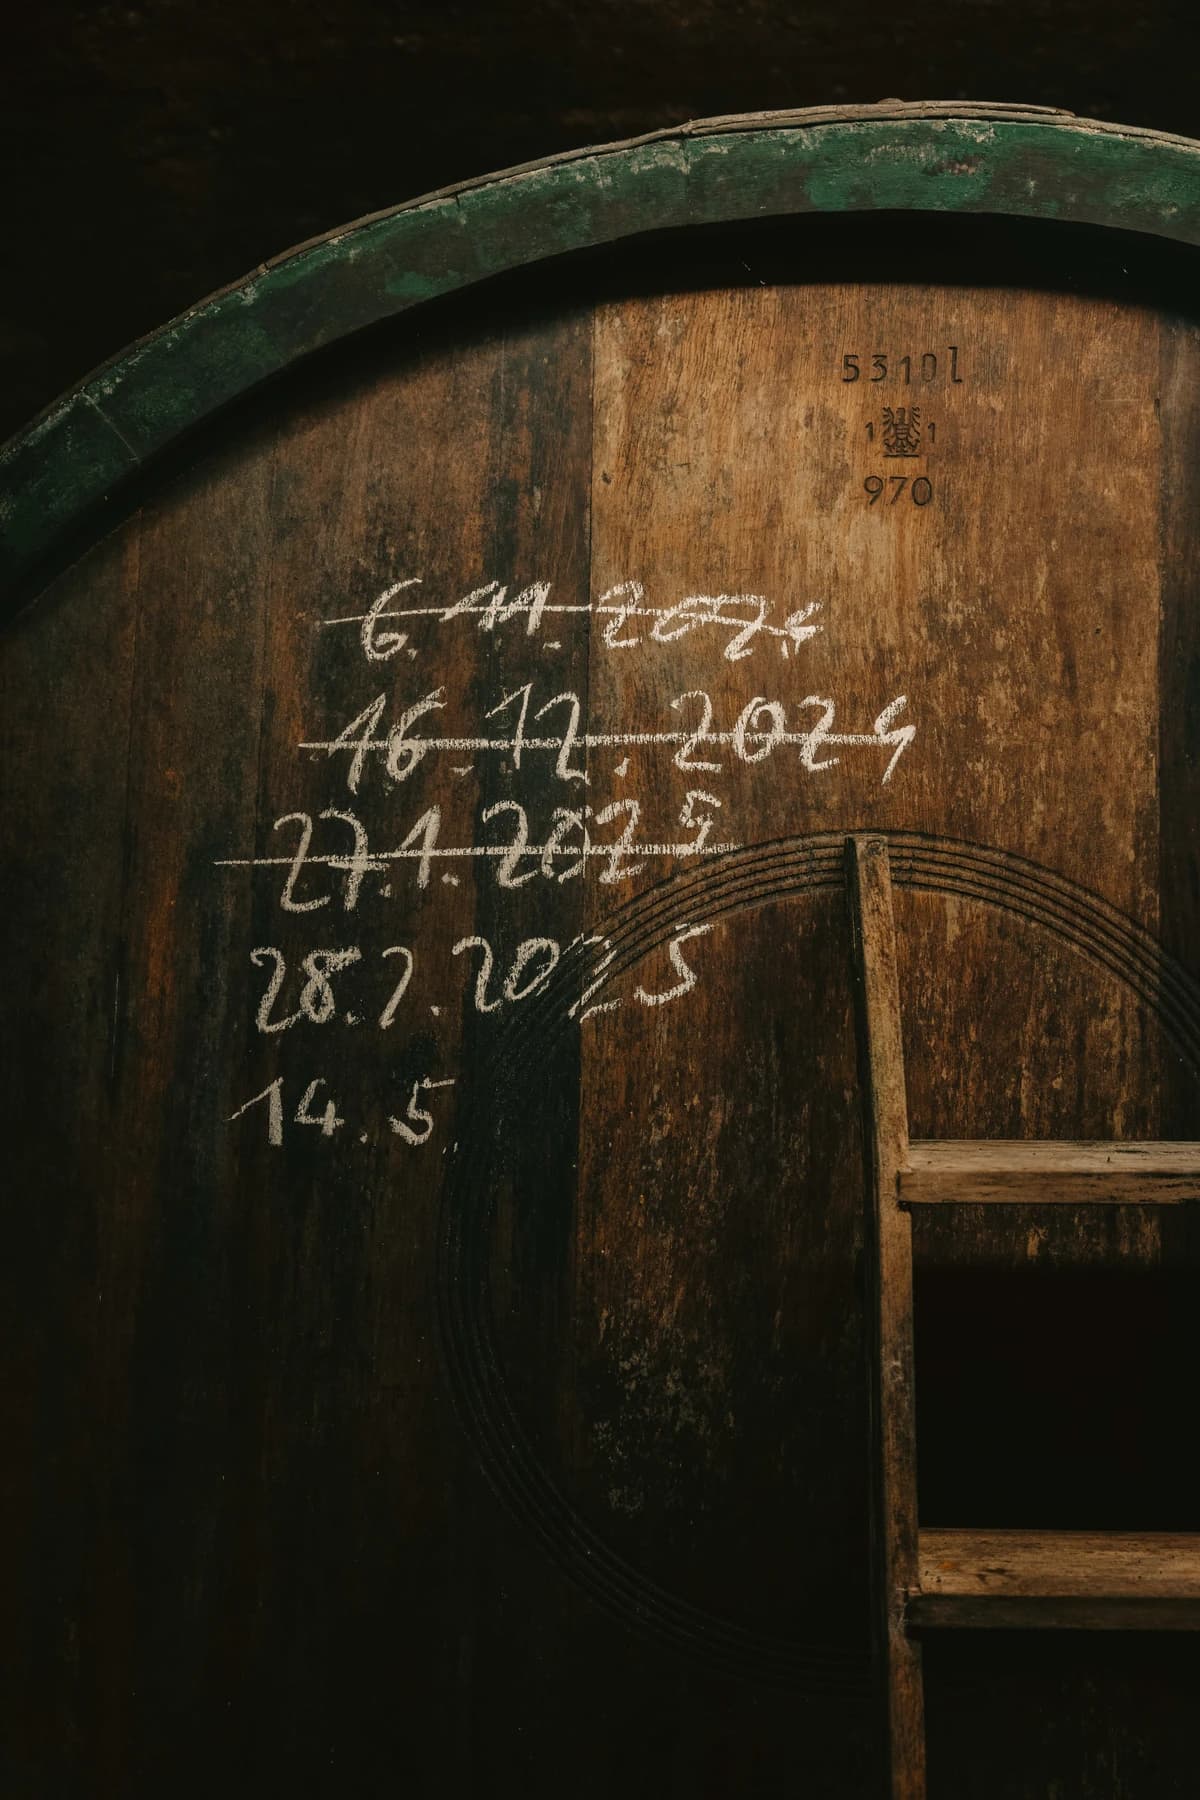 5310l
1 1
970
6. 11. 2024
16. 12. 2024
27. 1. 2025
28. 2. 2025
14. 5.